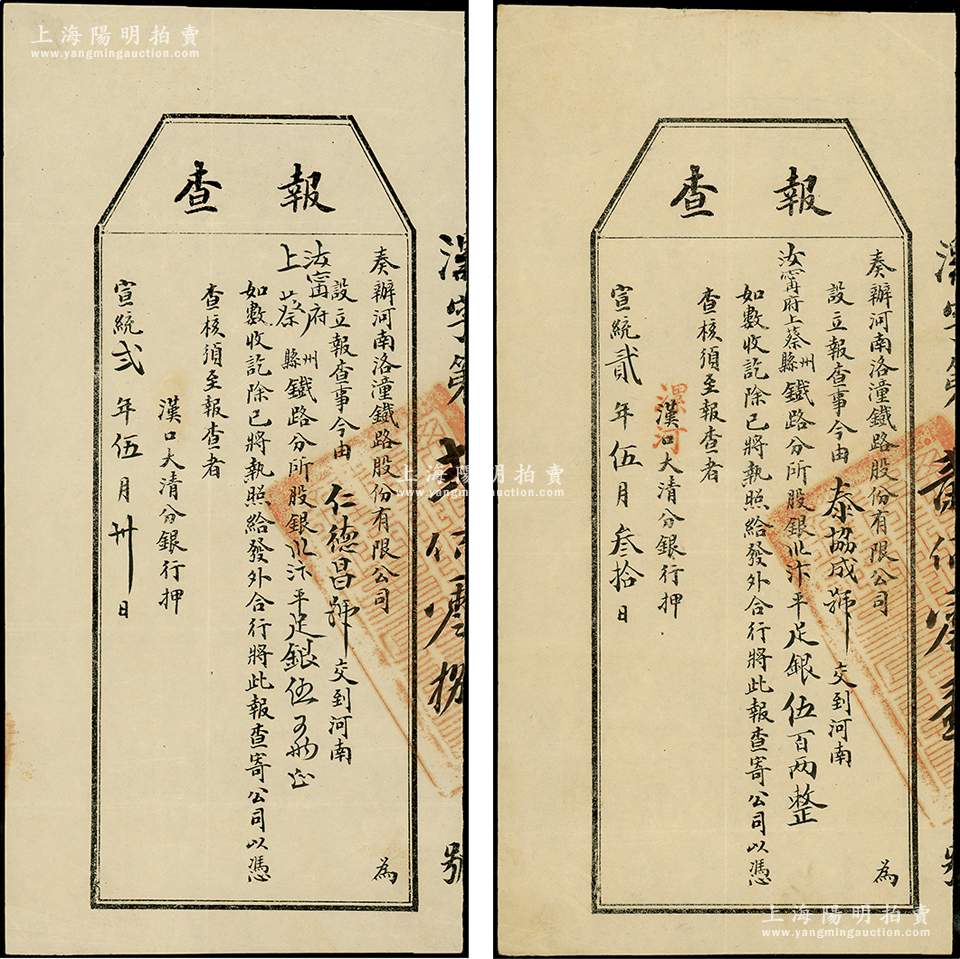 上海陽明拍賣
www.yangmingauction.com
報查
奏辦河南洛潼鐵路股份有限公司 為
設立報查事今由 仁德昌號 交到河南
汝寧府
上蔡 州縣 鐵路分所股銀 汴平足銀伍
如數收訖除已將執照給發外合行將此報查寄公司以憑
查核須至報查者
漢口大清分銀行押
宣統弍年伍月卅日
號
報查
奏辦河南洛潼鐵路股份有限公司 為
設立報查事今由 泰協成號 交到河南
汝寧府上蔡 州縣 鐵路分所股銀 汴平足銀伍百两整
如數收訖除已將執照給發外合行將此報查寄公司以憑
查核須至報查者
漯河
漢口大清分銀行押
宣統貳年伍月叁拾日
號
上海陽明拍賣
www.yangmingauction.com
上海陽明拍賣
www.yangmingauction.com